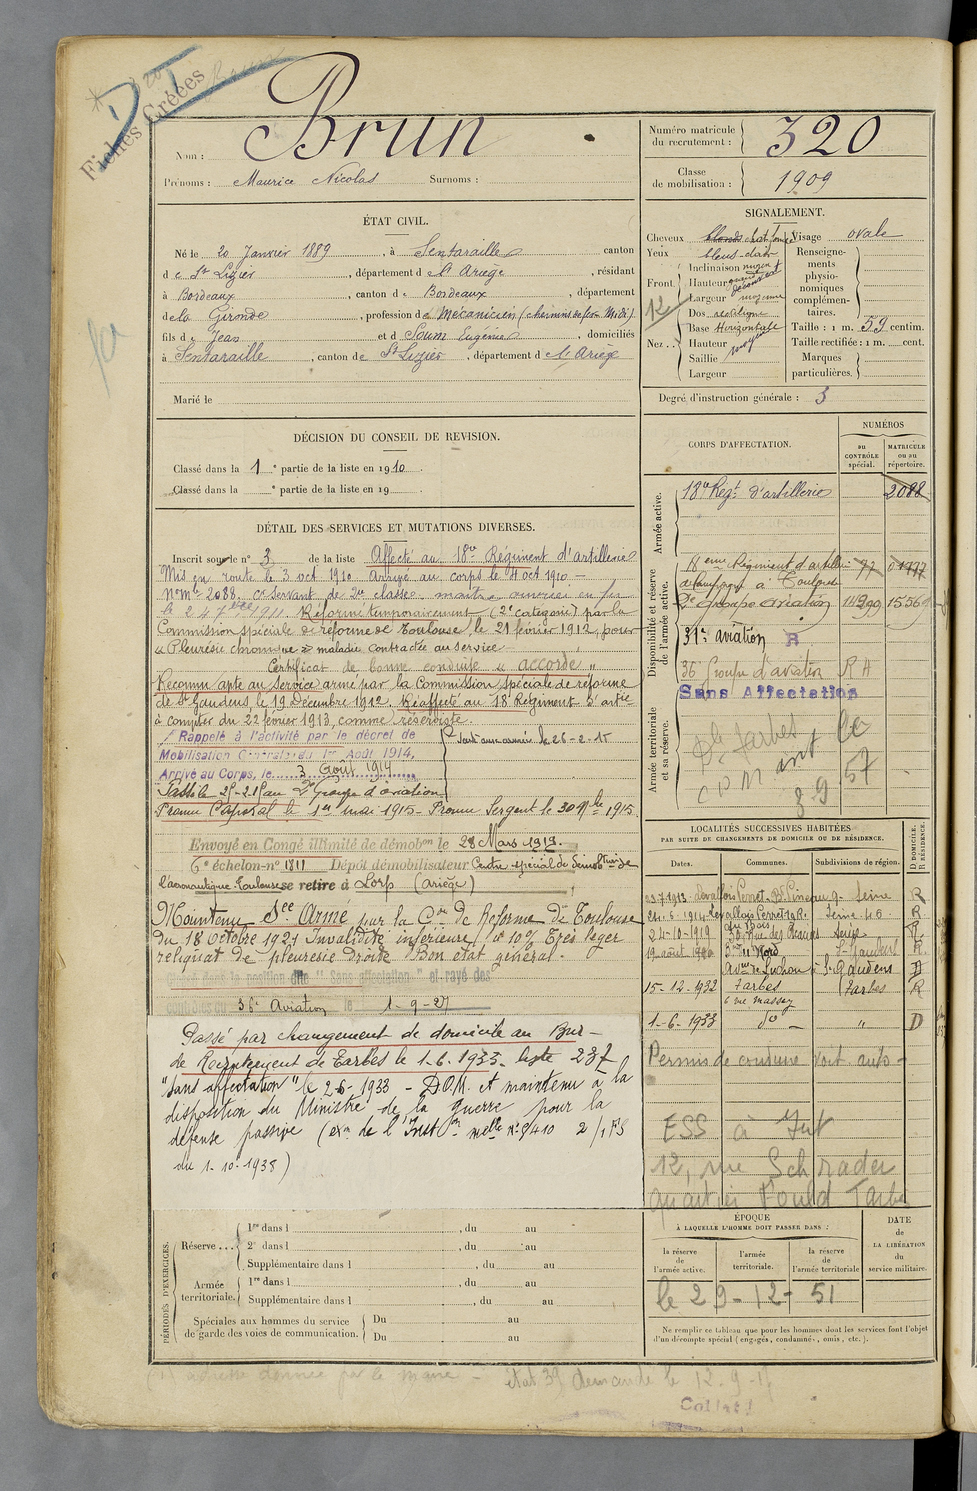 Fiches Créées
Nom : Brun
Prénoms : Maurice Nicolas Surnoms :
Numéro matricule du recrutement : 320
Classe de mobilisation : 1909
ÉTAT CIVIL.
Né le 20 Janvier 1889, à Sentaraille canton
de St Lizier, département de l'Ariège, résidant
à Bordeaux, canton de Bordeaux, département
de la Gironde, profession de Mécanicien (chemins de fer Midi)
fils de Jean et de Soum Eugénie, domiciliés
à Sentaraille, canton de St Lizier, département de l'Ariège
Marié le
SIGNALEMENT.
Cheveux blonds chat foncé
Yeux bleus clair
Front. Inclinaison moyen
Hauteur
Largeur moyenne
Nez . . Dos rectiligne
Base Horizontale
Hauteur moyen
Saillie
Largeur
Visage ovale
Renseignements physionomiques complémentaires.
Taille : 1 m. 59 centim.
Taille rectifiée : 1 m. cent.
Marques particulières.
Degré d'instruction générale : 3
DÉCISION DU CONSEIL DE REVISION.
Classé dans la 1e partie de la liste en 1910.
Classé dans la e partie de la liste en 19 .
DÉTAIL DES SERVICES ET MUTATIONS DIVERSES.
Inscrit sous le n° 3 de la liste Affecté au 18e Régiment d'artillerie
Mis en route le 3 oct 1910 Arrivé au corps le 4 oct 1910. -
N° Mle 2088. Cr servant de 2e classe maitre ouvrier en fer
le 24 7bre 1911. Réformé temporairement (2e catégorie) par la
Commission spéciale de réforme de Toulouse, le 21 février 1912, pour
" Pleurésie chronique " maladie contractée au service
Certificat de bonne conduite " accordé "
Reconnu apte au Service armé par la Commission spéciale de réforme
de St Gaudens, le 19 Décembre 1912. Réaffecté au 18e Régiment d'artie
à compter du 22 février 1913, comme réserviste.
Rappelé à l'activité par le décret de
Mobilisation Générale du 1er Août 1914,
Arrivé au Corps, le 3 Août 1914
Parti aux armées le 26-2-15
Passé le au 2e Groupe d'aviation
Promu Caporal le 1er mai 1915 - Promu Sergent le 30 1915.
Envoyé en Congé illimité de démobon le 28 Mars 1919.
6e échelon - n° 1811 Dépôt démobilisateur Centre spécial de de
l'aéronautique Toulouse se retire à Lorp (Ariège)
Maintenu Sce Armé par la Con de Réforme de Toulouse
du 18 Octobre 1921 Invalidité inférieure à 10% Très léger
reliquat de pleurésie droite Bon état général.
Classé dans la position dite "Sans affectation" et rayé des
contrôles du 36e Aviation le 1-9-27
Passé par changement de domicile au Bur-
de Recrutement de Tarbes le 1.6.1933. liste 237
"Sans affectation" le 2-6-1933 - D.O.M. et maintenu à la
disposition du Ministre de la guerre pour la
défense passive (exon de l'Inston melle n° 9410 2/1 FS
du 1-10-1938)
CORPS D'AFFECTATION.
NUMÉROS
DU CONTRÔLE spécial.
MATRICULE ou au répertoire.
Armée active.
18e Regt d'artillerie 2088
Disponibilité et réserve de l'armée active.
18eme Régiment d'artillerie 77 01477
de campagne à Toulouse
2e groupe aviation 14290 15569
31e aviation R
36e Groupe d'aviation R A
Sans Affectation
Armée territoriale et sa réserve.
Tarbes
8.9.57
LOCALITÉS SUCCESSIVES HABITÉES
PAR SUITE DE CHANGEMENTS DE DOMICILE OU DE RÉSIDENCE.
Dates. Communes. Subdivisions de région. D DOMICILE. R RÉSIDENCE.
Levallois Perret Seine R
24-6-1914 Levallois Perret 19 R. Seine 4 B R.
du Bois
24-10-1919 R.
19 août 1920 Nord St Gaudens R.
Avue de Luchon à St Gaudens D
15-12-1932 Tarbes Tarbes R
6 rue Massey
1-6-1933 do " D
Permis de conduire voit. auto -
12, rue Schrader
quartier Fould Tarbes
PÉRIODES D'EXERCICES.
Réserve . . . 1re dans l , du au
2e dans l , du au
Supplémentaire dans l , du au
Armée territoriale. 1re dans l , du au
Supplémentaire dans l , du au
Spéciales aux hommes du service de garde des voies de communication. Du au
Du au
ÉPOQUE
À LAQUELLE L'HOMME DOIT PASSER DANS :
la réserve de l'armée active.
l'armée territoriale.
la réserve de l'armée territoriale
DATE de LA LIBÉRATION du service militaire.
le 29-12-51
Ne remplir ce tableau que pour les hommes dont les services font l'objet
d'un décompte spécial (engagés, condamnés, omis, etc.).
(1) adresse donnée par le maire - état 39 demandé le 12-9-